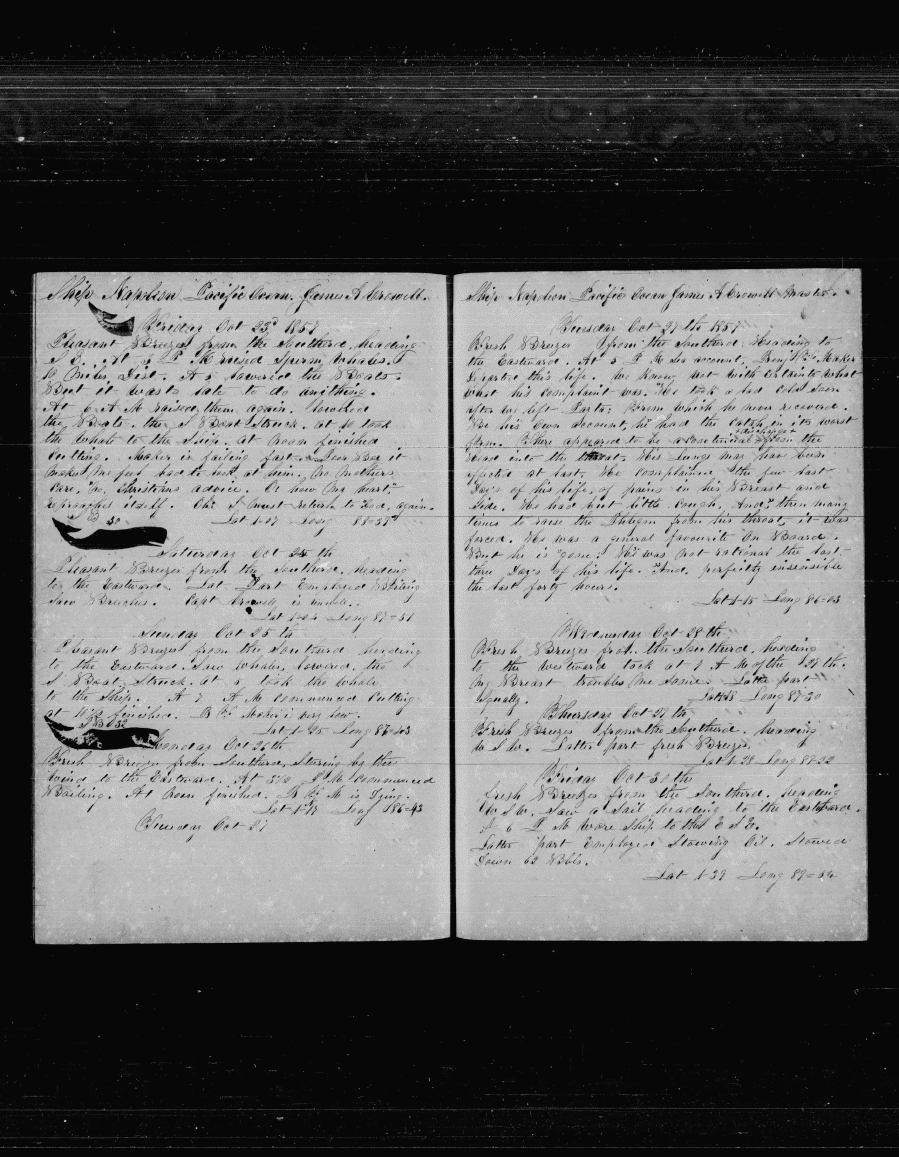 Ship Napoleon Pacific Ocean. James A Crowell.
Friday Oct 23d 1857
Pleasant Breezes from the Southerd, heading
S E. At P M raised Sperm Whales.
10 Miles Dist. At 5 lowered the Boats.
But it was to late to do anything.
At 6 A M raised them again. lowered
the Boats. the S Boat Struck. at 10 took
the whale to the Ship. at noon finished
Cutting. Maker is failing fast. Poor Boy it
makes me feel bad to look at him. No Mothers
Care, No, Christians advice. O! how My heart,
reproaches itself. Oh! I must return to God, again.
Lat 1-17 Long 88-58
Saturday Oct 24 th
Pleasant Breezes from the Southerd, heading
to the Eastward. Lat Part Employed
Saw Breaches. Capt Crowell is unwell.
Lat 1-24 Long 87-51
Sunday Oct 25 th
Pleasant Breezes from the Southerd heading
to the Eastward. Saw Whales, lowered, the
S Boat, Struck. at 5 took the Whale
to the Ship. At 7 A M commenced Cutting
at finished. B Maker is very low.
Lat 1-25 Long 87-03
Monday Oct 26 th
Fresh Breezes from Southerd, Stering by the
wind to the Eastward. At P M commenced
Boiling. At Noon finished. B M is Dying.
Lat 1-17 Long 86-43
Tuesday Oct 27
Ship Napoleon Pacific Ocean James A Crowell Master.
Tuesday Oct 27 th 1857
Fresh Breezes from the Southerd. Heading to
the Eastward. At 5 P M Sea account, Benj Maker
Departed this life. We know not with certainty what
what his complaint was. He took a bad cold soon
after we left Paita; From which he never recovered.
By his own account, he had the Catarh in its worst
form. There appeared to be a continual discharge from the
Head into the throat. His Lungs may has been
effected at last. He complained the few last
Days of his life, of pains in his Breast and
Side. He had but little Cough, And, then many
times to raise the Phlegm from his throat, it was
forced. He was a general favourite On Board.
But he is "gone! He was not rational the last
three Days of his life. And, perfectly insensible
the last forty hours.
Lat 1-15 Long 86-03
Wednesday Oct 28 th
Fresh Breezes from the Southerd, heading
to the westward took at 7 A M of the 27 th.
My Breast troubles Me Some. Latter part
Squally. Long 87-20
Thursday Oct 29 th
Fresh Breezes from the Southerd. heading
W S W. Latter part fresh Breezes.
Lat 1-28 Long 88-22
Friday Oct 30 th
fresh Breezes from the Southerd, heading
W S W. Saw a Sail heading to the Eastward.
At 6 P M Wore Ship to the E S E.
Latter part Employed Stowing Oil. Stowed
Down 62 Bbls.
Lat 1-29 Long 89-04